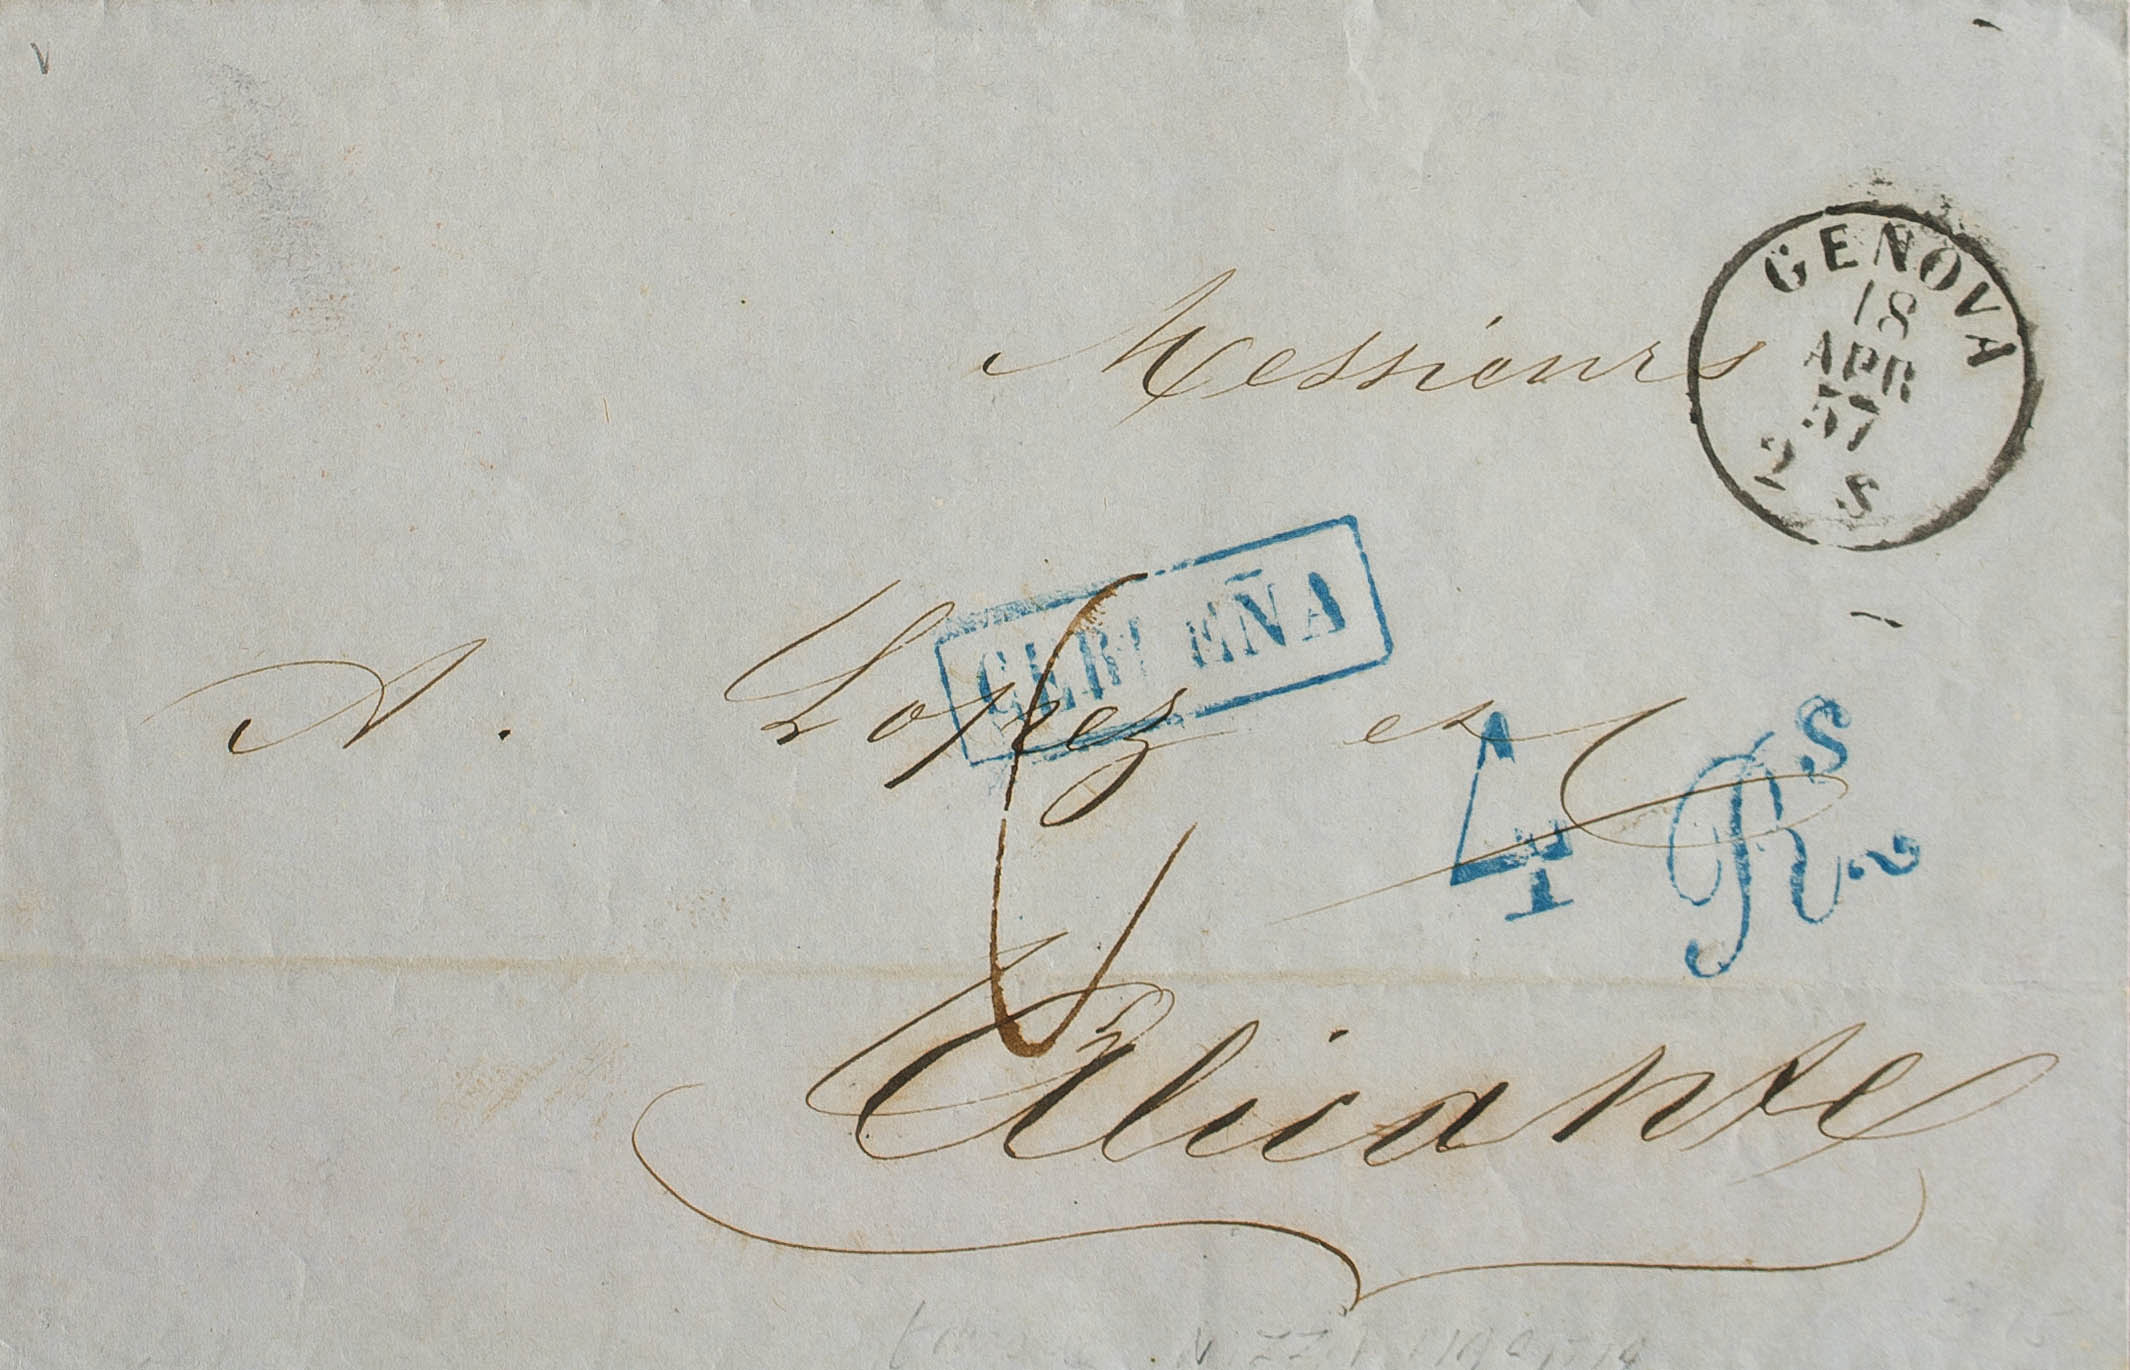 GENOVA
18
APR
57
2 S
Messieurs
CERDEÑA
A. Lopez et C
4 Rs
Alicante